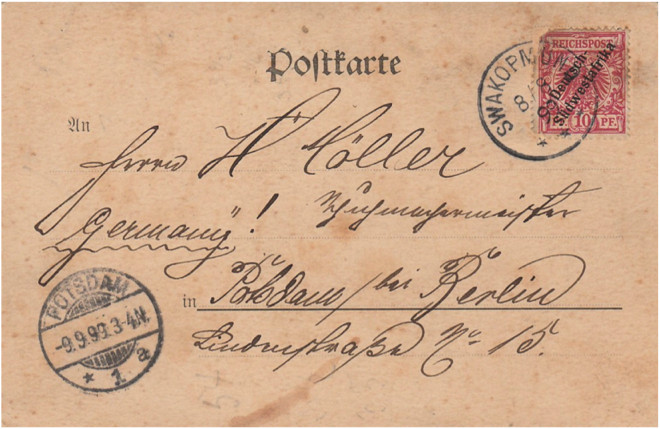 Postkarte
REICHSPOST
Deutsch-
Südwestafrika
10 PF.
SWAKOPMUND
8
An
Herrn H Möller
Germany"! Schuhmachermeister
in Potsdam bei Berlin
Lindenstraße No 15.
POTSDAM
-9.9.99.3-4N.
* 1 a